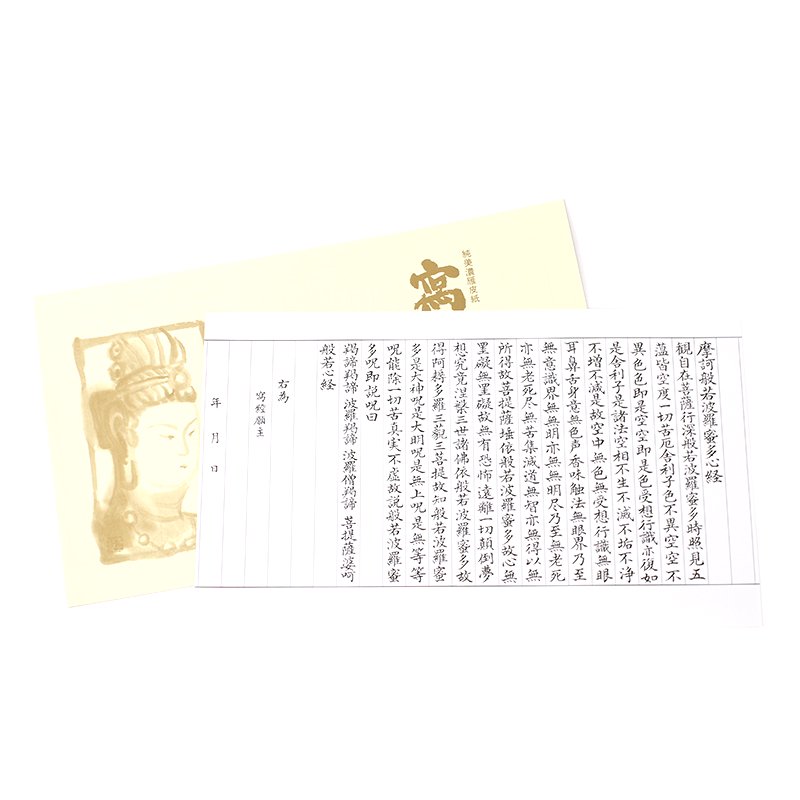 純美濃雁皮紙
寫
摩訶般若波羅蜜多心経
観自在菩薩行深般若波羅蜜多時照見五
蘊皆空度一切苦厄舎利子色不異空空不
異色色即是空空即是色受想行識亦復如
是舎利子是諸法空相不生不滅不垢不浄
不増不減是故空中無色無受想行識無眼
耳鼻舌身意無色声香味触法無眼界乃至
無意識界無無明亦無無明尽乃至無老死
亦無老死尽無苦集滅道無智亦無得以無
所得故菩提薩埵依般若波羅蜜多故心無
罣礙無罣礙故無有恐怖遠離一切顛倒夢
想究竟涅槃三世諸佛依般若波羅蜜多故
得阿耨多羅三藐三菩提故知般若波羅蜜
多是大神呪是大明呪是無上呪是無等等
呪能除一切苦真実不虚故説般若波羅蜜
多呪即説呪曰
羯諦羯諦 波羅羯諦 波羅僧羯諦 菩提薩婆呵
般若心経
右為
寫經願主
年 月 日